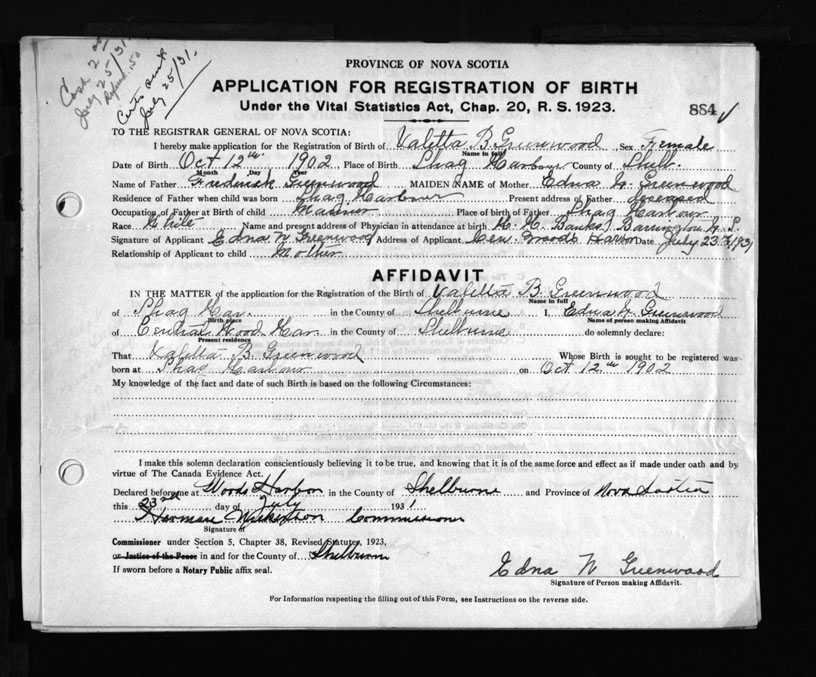 Cash 2.00
July 25/31.
Refund .50
Certs sent
July 25/31.
PROVINCE OF NOVA SCOTIA
APPLICATION FOR REGISTRATION OF BIRTH
Under the Vital Statistics Act, Chap. 20, R. S. 1923.
884
TO THE REGISTRAR GENERAL OF NOVA SCOTIA:
I hereby make application for the Registration of Birth of Valetta B. Greenwood Sex Female
Name in full
Date of Birth Oct 12th 1902 Place of Birth Shag Harbour County of Shelb.
Month Day Year
Name of Father Frederick Greenwood MAIDEN NAME of Mother Edna N. Greenwood
Residence of Father when child was born Shag Harbour Present address of Father deceased
Occupation of Father at Birth of child Mariner Place of birth of Father Shag Harbour
Race White Name and present address of Physician in attendance at birth Banks Barrington N. S.
Signature of Applicant Edna N Greenwood Address of Applicant Cen. Woods Harbor Date July 23rd 1931
Relationship of Applicant to child Mother
AFFIDAVIT
IN THE MATTER of the application for the Registration of the Birth of Valetta B. Greenwood
Name in full
of Shag Har. in the County of Shelburne I, Edna N. Greenwood
Birth place Name of person making Affidavit
of Central Wood Har in the County of Shelburne do solemnly declare:
Present residence
That Valetta B. Greenwood Whose Birth is sought to be registered was
born at Shag Harbour on Oct 12th 1902
My knowledge of the fact and date of such Birth is based on the following Circumstances:
I make this solemn declaration conscientiously believing it to be true, and knowing that it is of the same force and effect as if made under oath and by
virtue of The Canada Evidence Act.
Declared before me at Woods Harbor in the County of Shelburne and Province of Nova Scotia
this 23rd day of July 1931
Herman Nickerson Commissioner
Signature of
Commissioner under Section 5, Chapter 38, Revised Statutes, 1923,
or Justice of the Peace in and for the County of Shelburn
If sworn before a Notary Public affix seal.
Edna N Greenwood
Signature of Person making Affidavit.
For Information respecting the filling out of this Form, see Instructions on the reverse side.